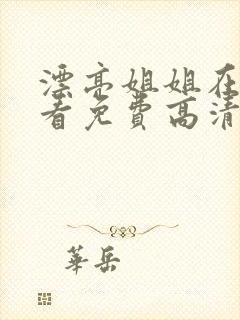 漂亮姐姐在
看免费高清
華岳